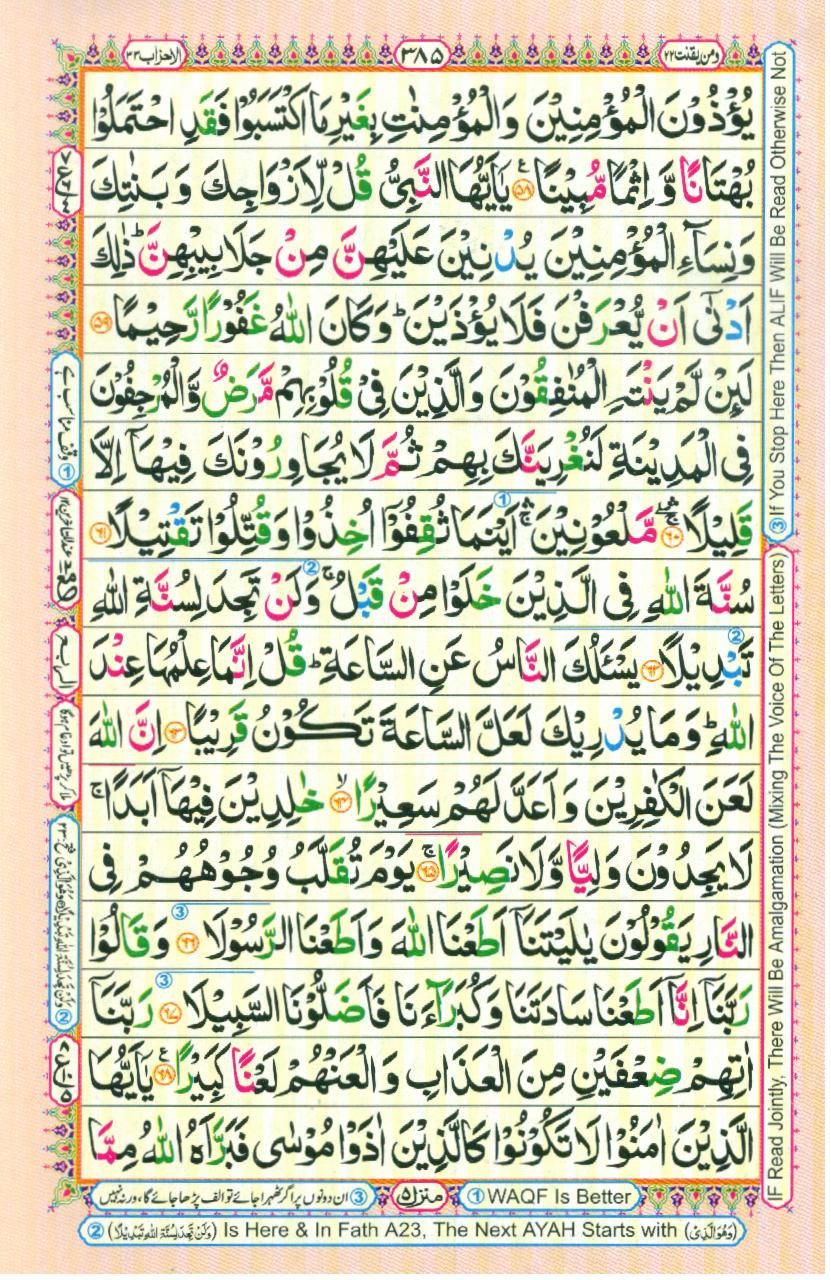 ومن یقنت ۲۲
۳۸۵
الاحزاب ۳۳
یُؤْذُوْنَ الْمُؤْمِنِیْنَ وَالْمُؤْمِنٰتِ بِغَیْرِ مَا اكْتَسَبُوْا فَقَدِ احْتَمَلُوْا
بُهْتَانًا وَّ اِثْمًا مُّبِیْنًا ﴿۵۸﴾ یٰۤاَیُّهَا النَّبِیُّ قُلْ لِّاَزْوَاجِكَ وَ بَنٰتِكَ
وَنِسَآءِ الْمُؤْمِنِیْنَ یُدْنِیْنَ عَلَیْهِنَّ مِنْ جَلَابِیْبِهِنَّ ؕ ذٰلِكَ
اَدْنٰۤی اَنْ یُّعْرَفْنَ فَلَا یُؤْذَیْنَ ؕ وَكَانَ اللّٰهُ غَفُوْرًا رَّحِیْمًا ﴿۵۹﴾
لَىِٕنْ لَّمْ یَنْتَهِ الْمُنٰفِقُوْنَ وَالَّذِیْنَ فِیْ قُلُوْبِهِمْ مَّرَضٌ وَّالْمُرْجِفُوْنَ
فِی الْمَدِیْنَةِ لَنُغْرِیَنَّكَ بِهِمْ ثُمَّ لَا یُجَاوِرُوْنَكَ فِیْهَاۤ اِلَّا
قَلِیْلًا ﴿۶۰﴾ مَّلْعُوْنِیْنَ ۛۚ اَیْنَمَا ثُقِفُوْۤا اُخِذُوْا وَقُتِّلُوْا تَقْتِیْلًا ﴿۶۱﴾
سُنَّةَ اللّٰهِ فِی الَّذِیْنَ خَلَوْا مِنْ قَبْلُ ۚ وَلَنْ تَجِدَ لِسُنَّةِ اللّٰهِ
تَبْدِیْلًا ﴿۶۲﴾ یَسْـَٔلُكَ النَّاسُ عَنِ السَّاعَةِ ؕ قُلْ اِنَّمَا عِلْمُهَا عِنْدَ
اللّٰهِ ؕ وَمَا یُدْرِیْكَ لَعَلَّ السَّاعَةَ تَكُوْنُ قَرِیْبًا ﴿۶۳﴾ اِنَّ اللّٰهَ
لَعَنَ الْكٰفِرِیْنَ وَ اَعَدَّ لَهُمْ سَعِیْرًا ﴿۶۴﴾ خٰلِدِیْنَ فِیْهَاۤ اَبَدًا ۚ
لَا یَجِدُوْنَ وَلِیًّا وَّلَا نَصِیْرًا ﴿۶۵﴾ یَوْمَ تُقَلَّبُ وُجُوْهُهُمْ فِی
النَّارِ یَقُوْلُوْنَ یٰلَیْتَنَاۤ اَطَعْنَا اللّٰهَ وَ اَطَعْنَا الرَّسُوْلَا ﴿۶۶﴾ وَ قَالُوْا
رَبَّنَاۤ اِنَّاۤ اَطَعْنَا سَادَتَنَا وَ كُبَرَآءَنَا فَاَضَلُّوْنَا السَّبِیْلَا ﴿۶۷﴾ رَبَّنَاۤ
اٰتِهِمْ ضِعْفَیْنِ مِنَ الْعَذَابِ وَ الْعَنْهُمْ لَعْنًا كَبِیْرًا ﴿۶۸﴾ یٰۤاَیُّهَا
الَّذِیْنَ اٰمَنُوْا لَا تَكُوْنُوْا كَالَّذِیْنَ اٰذَوْا مُوْسٰی فَبَرَّاَهُ اللّٰهُ مِمَّا
③If You Stop Here Then ALIF Will Be Read Otherwise Not
IF Read Jointly, There Will Be Amalgamation (Mixing The Voice Of The Letters)
① وقف مناسب ہے
① WAQF Is Better
منزل ۵
③ ان دونوں پر اگر ٹھہرا جائے تو الف پڑھا جائے گا، ورنہ نہیں
② (وَلَنْ تَجِدَ لِسُنَّةِ اللّٰهِ تَبْدِیْلًا) Is Here & In Fath A23, The Next AYAH Starts with (وَهُوَ الَّذِیْ)